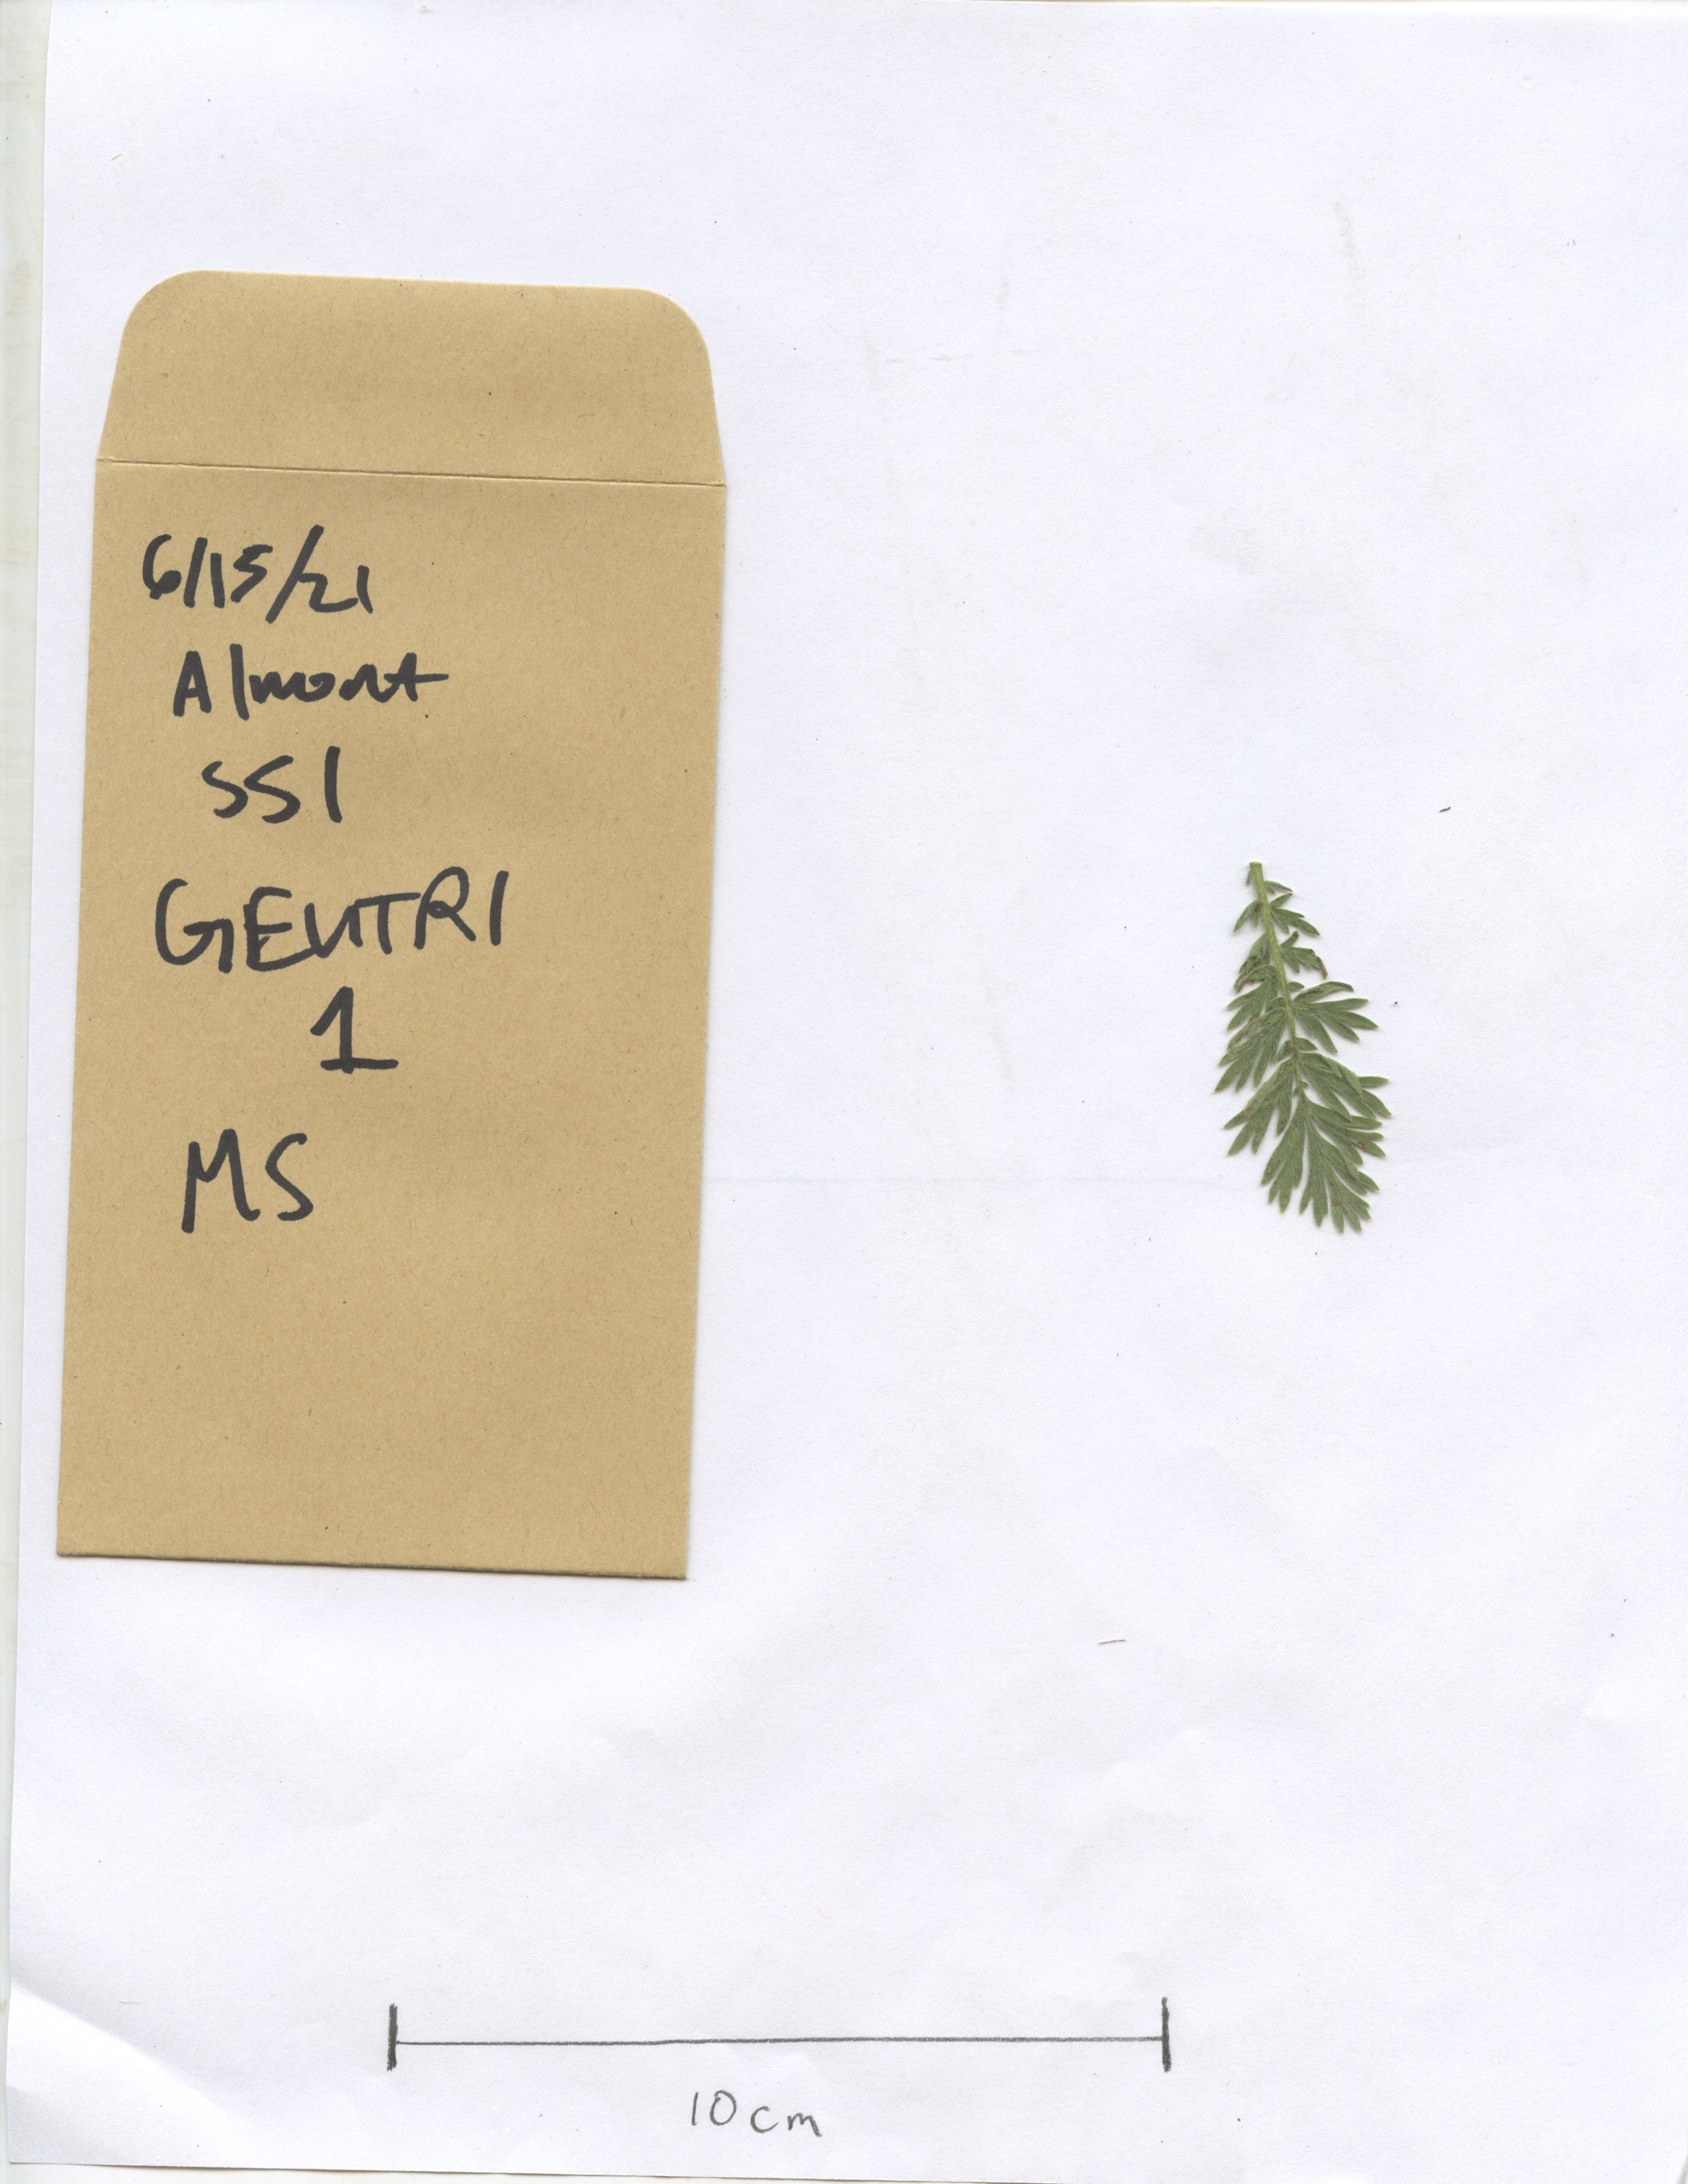 6/15/21
Almont
SS1
GEUTRI
1
MS
10cm